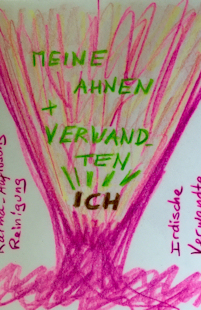 MEINE
AHNEN
+
VERWAND-
TEN
ICH
Karma-Auflösung
Reinigung
Irdische
Verwandte